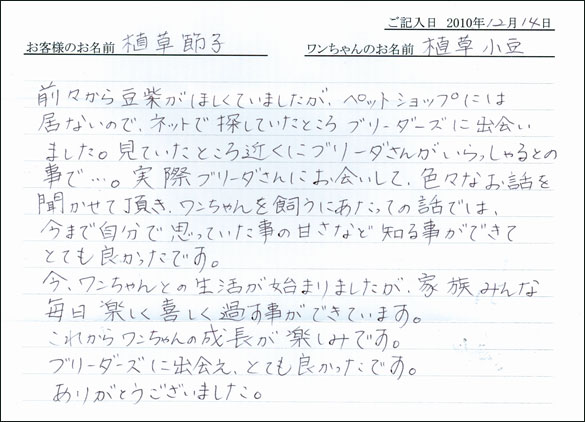 ご記入日 2010年12月14日
お客様のお名前 植草節子 ワンちゃんのお名前 植草小豆
前々から豆柴がほしくていましたが、ペットショップには
居ないので、ネットで探していたところ ブリーダーズに出会い
ました。見ていたところ近くにブリーダさんがいらっしゃるとの
事で…。実際ブリーダさんにお会いして、色々なお話を
聞かせて頂き、ワンちゃんを飼うにあたっての話では、
今まで自分で思っていた事の甘さなど知る事ができて
とても良かったです。
今、ワンちゃんとの生活が始まりましたが、家族みんな
毎日楽しく喜しく過す事ができています。
これからワンちゃんの成長が楽しみです。
ブリーダーズに出会え、とても良かったです。
ありがとうございました。